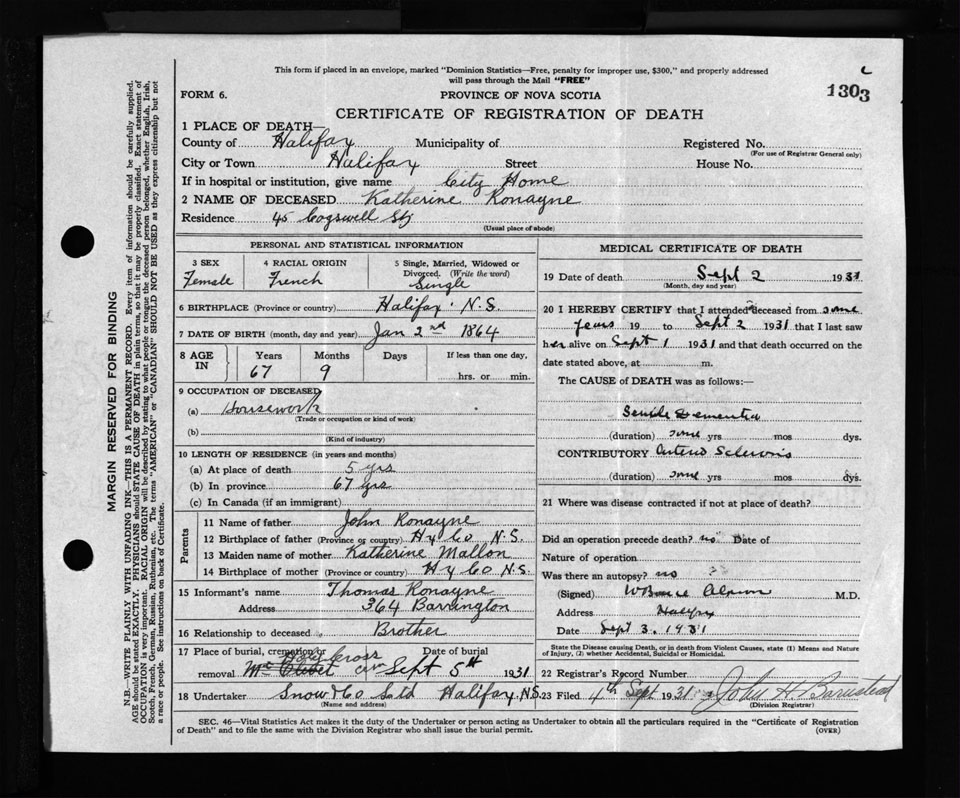 This form if placed in an envelope, marked "Dominion Statistics—Free, penalty for improper use, $300," and properly addressed
will pass through the Mail "FREE"
c
1303
FORM 6.
PROVINCE OF NOVA SCOTIA
CERTIFICATE OF REGISTRATION OF DEATH
1 PLACE OF DEATH—
County of Halifax Municipality of Registered No.
(For use of Registrar General only)
City or Town Halifax Street House No.
If in hospital or institution, give name City Home
2 NAME OF DECEASED Katherine Ronayne
Residence 45 Cogswell St
(Usual place of abode)
PERSONAL AND STATISTICAL INFORMATION
3 SEX
Female
4 RACIAL ORIGIN
French
5 Single, Married, Widowed or
Divorced. (Write the word)
Single
6 BIRTHPLACE (Province or country) Halifax. N.S.
7 DATE OF BIRTH (month, day and year) Jan 2nd 1864
8 AGE IN Years Months Days If less than one day,
67 9 hrs. or min.
9 OCCUPATION OF DECEASED
(a) Housework
(Trade or occupation or kind of work)
(b)
(Kind of industry)
10 LENGTH OF RESIDENCE (in years and months)
(a) At place of death 5 yrs
(b) In province 67 yrs
(c) In Canada (if an immigrant)
Parents
11 Name of father John Ronayne
12 Birthplace of father (Province or country) Hx Co N.S.
13 Maiden name of mother Katherine Mallon
14 Birthplace of mother (Province or country) Hx Co N.S.
15 Informant's name Thomas Ronayne
Address 364 Barrington
16 Relationship to deceased Brother
17 Place of burial, cremation or Date of burial
Holy Cross
removal Mt Olivet Cem Sept 5th 1931
18 Undertaker Snow & Co Ltd Halifax N.S.
(Name and address)
MEDICAL CERTIFICATE OF DEATH
19 Date of death Sept 2 1931
(Month, day and year)
20 I HEREBY CERTIFY that I attended deceased from some
years 19 to Sept 2 1931 that I last saw
her alive on Sept 1 1931 and that death occurred on the
date stated above, at m.
The CAUSE of DEATH was as follows:
Senile Dementia
(duration) some yrs mos dys.
CONTRIBUTORY Arterio Sclerosis
(duration) some yrs mos dys.
21 Where was disease contracted if not at place of death?
Did an operation precede death? no Date of
Nature of operation
Was there an autopsy? no
(Signed) W Bruce Almon M.D.
Address Halifax
Date Sept 3. 1931
State the Disease causing Death, or in Death from Violent Causes, state (1) Means and Nature
of Injury, (2) whether Accidental, Suicidal or Homicidal.
22 Registrar's Record Number
23 Filed 4th Sept 1931 John H Barnstead
(Division Registrar)
SEC. 46—Vital Statistics Act makes it the duty of the Undertaker or person acting as Undertaker to obtain all the particulars required in the "Certificate of Registration
of Death" and to file the same with the Division Registrar who shall issue the burial permit.
(OVER)
MARGIN RESERVED FOR BINDING
N.B.—WRITE PLAINLY WITH UNFADING INK—THIS IS A PERMANENT RECORD. Every item of information should be carefully supplied.
AGE should be stated EXACTLY. PHYSICIANS should STATE CAUSE OF DEATH in plain terms, so that it may be properly classified. Exact statement of
OCCUPATION is very important. RACIAL ORIGIN will be described by stating to what people or tongue the deceased person belonged, whether English, Irish,
Scotch, French, German, Russian, Ruthenian, etc. The terms "AMERICAN" or "CANADIAN" SHOULD NOT BE USED as they express citizenship but not
a race or people. See instructions on back of Certificate.